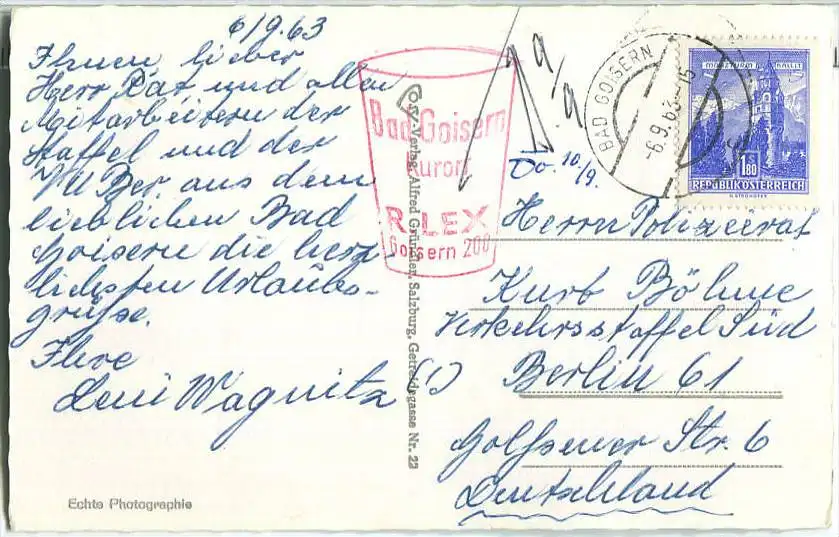 6/9.63
Ihnen lieber
Herr Rat und allen
Mitarbeitern der
Staffel und der
VUBer aus dem
lieblichen Bad
Goisern die herz-
lichsten Urlaubs-
grüsse.
Ihre
Leni Wagnitz (!)
Echte Photographie
Bad Goisern
Kurort
RILEX
Goisern 200
Cosy-Verlag Alfred Gründler, Salzburg, Getreidegasse Nr. 22
9/9
Do. 10/9.
BAD GOISERN
-6.9.63-15
MÜNZTURM HALL I.T.
1.80
REPUBLIK ÖSTERREICH
Herrn Polizeirat
Kurt Böhme
Verkehrsstaffel Süd
Berlin 61
Golssener Str. 6
Deutschland